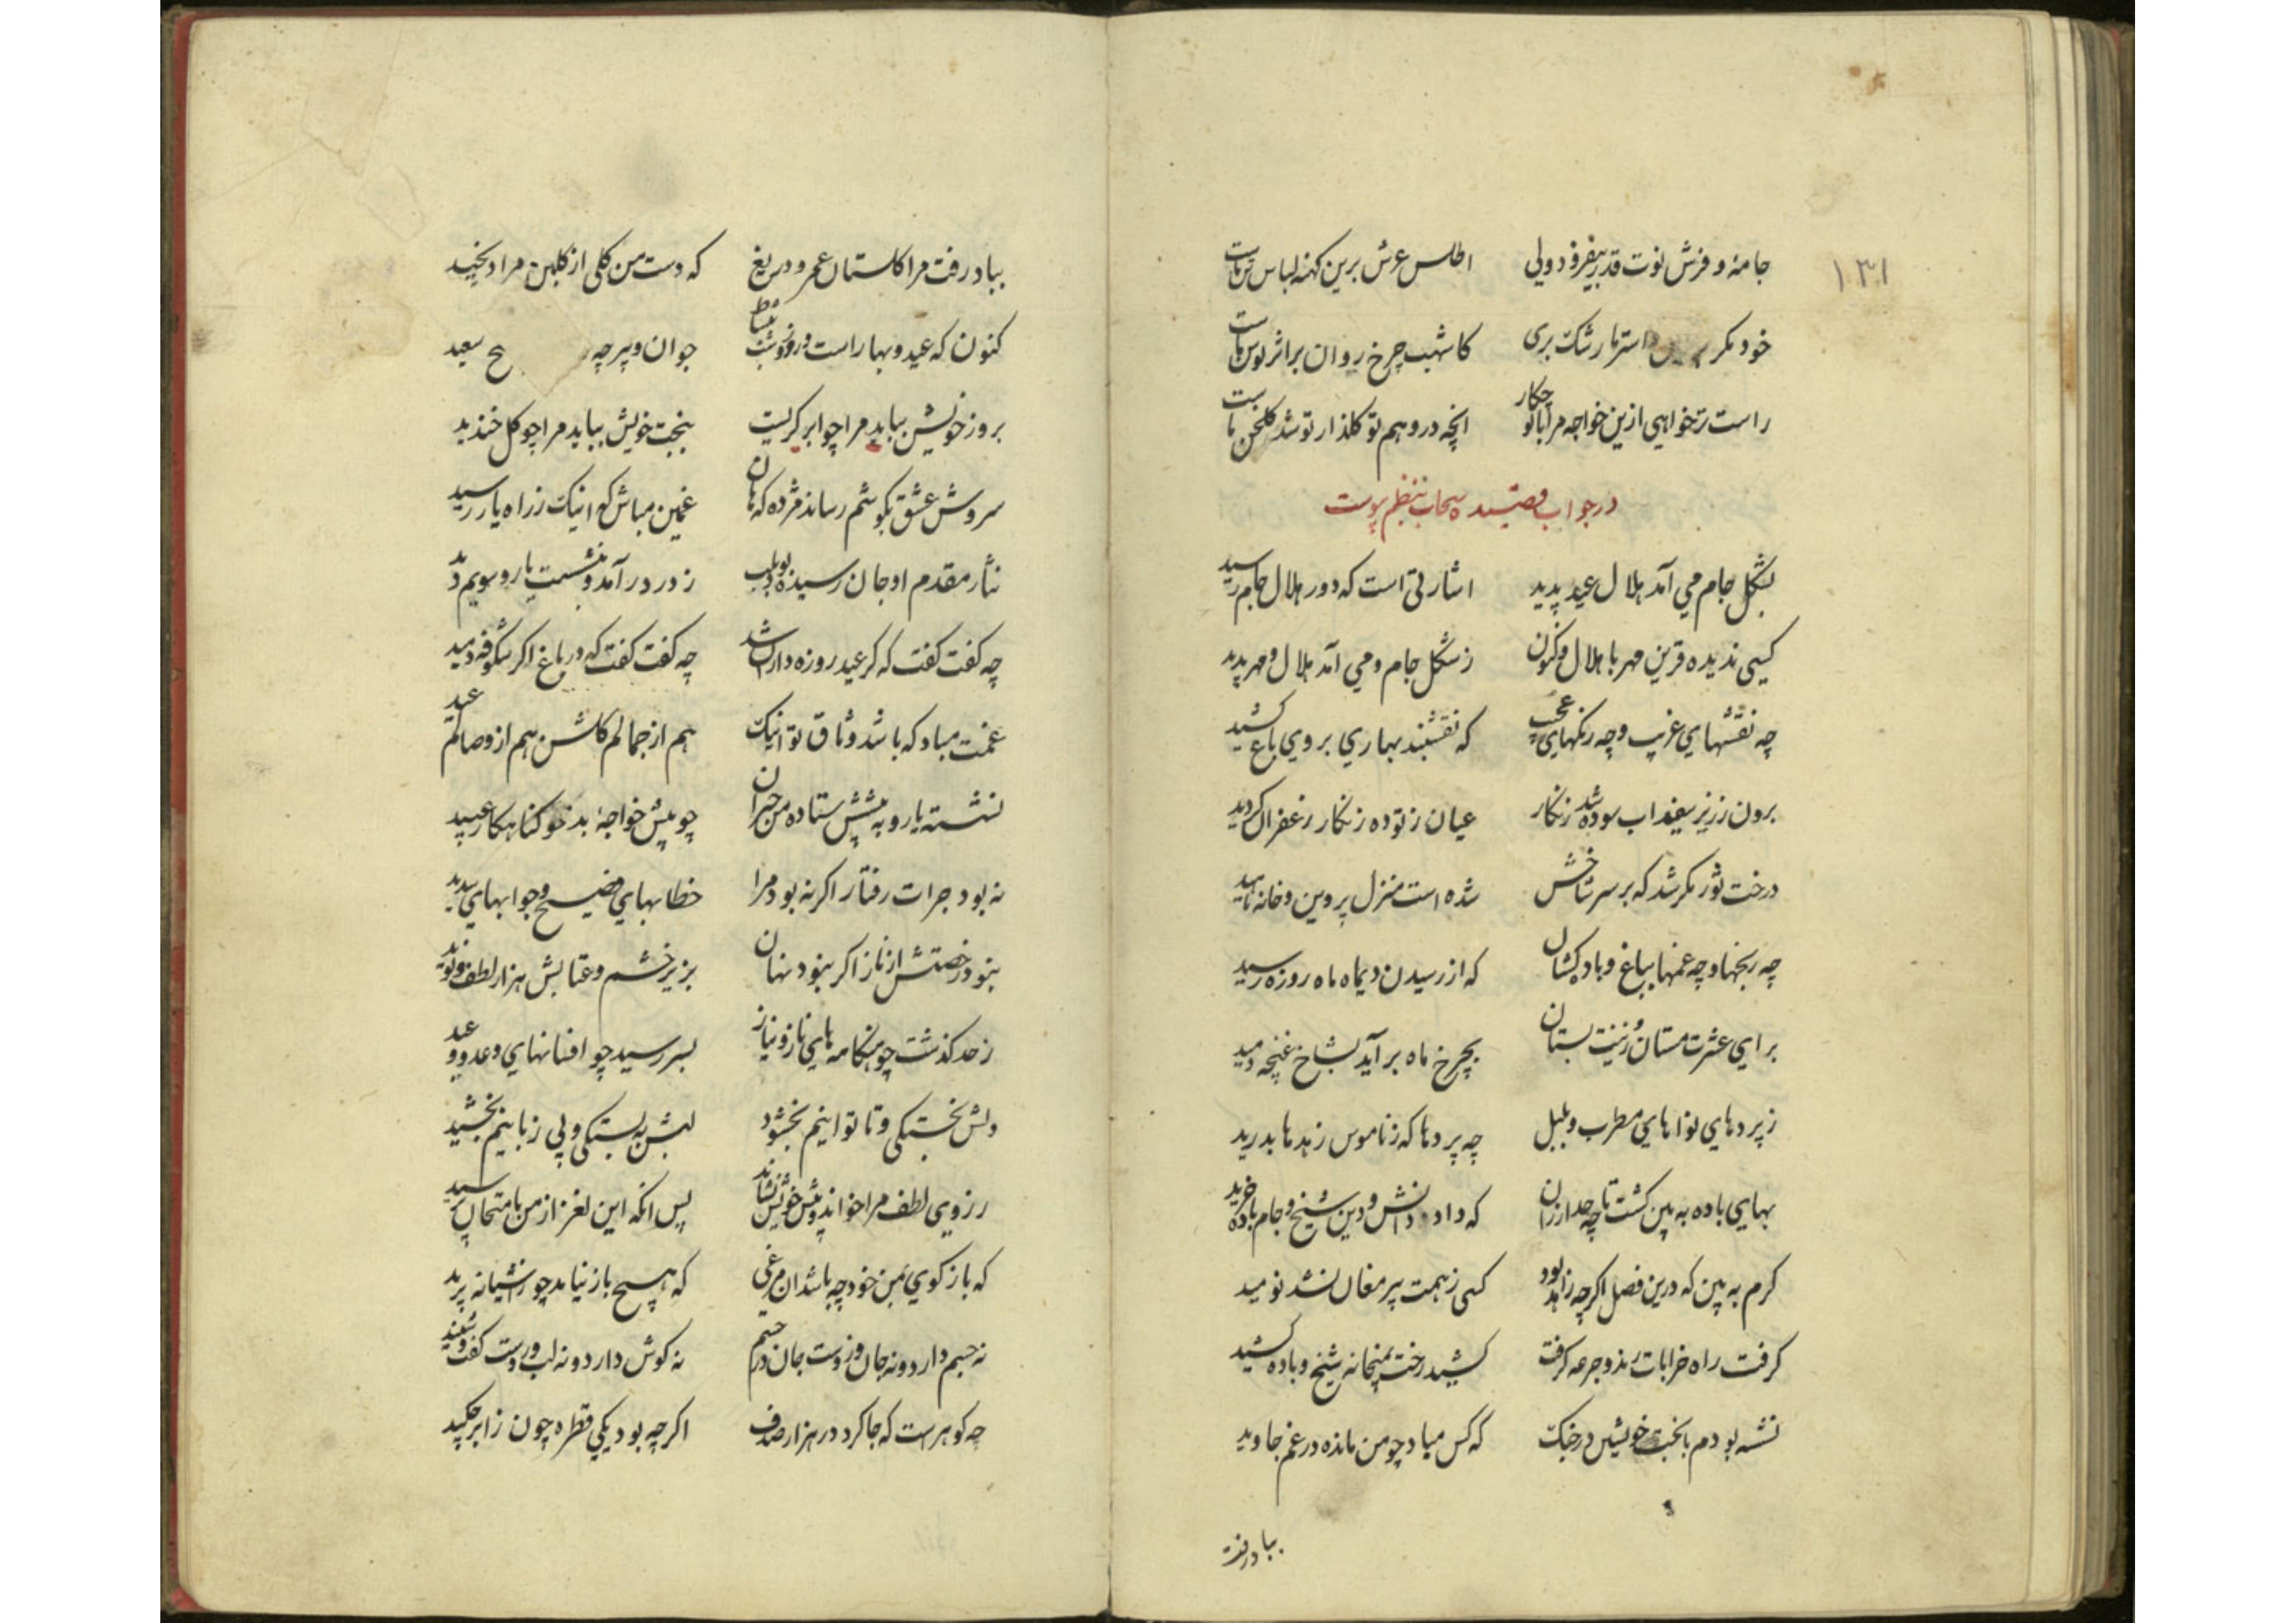 ۱۳۱
جامه و فرش نوت قدر بیفزود ولی اطلس عرش برین کهنه لباس تن ماست
خود مکر استر ما رشک بری کاشهب چرخ روان بر اثر توسن ماست
راست خواهی ازین خواجه مرا با تو چکار انچه در وهم تو کلذار تو شد کلخن ماست
در جواب قصیده سحاب بنظم پیوست
بشکل جام می آمد هلال عید پدید اشارتی است که دور هلال جام رسید
کسی ندیده قرین مهر با هلال و کنون ز شکل جام و می آمد هلال و مهر پدید
چه نقشهای غریب و چه رنکهای عجب که نقشبند بهاری بروی باغ کشید
برون ز زیر سفیداب سوده شد زنکار عیان ز توده زنکار زعفران کردید
درخت ثور مکر شد که بر سر شاخش شده است منزل پروین و خانه ناهید
چه رنجها و چه غمها بباغ و باده کشان که از رسیدن دیماه ماه روزه رسید
برای عشرت مستان و زینت بستان بچرخ ماه برآید بشاخ غنچه دمید
ز پردهای نواهای مطرب و بلبل چه پردها که ز ناموس زهد ما بدرید
بهای باده به بین کشت تا چه حد ارزان که داد دانش و دین شیخ و جام باده خرید
کرم به بین که درین فصل اکرچه زاهد بود کسی ز همت پیر مغان نشد نومید
کرفت راه خرابات رند و جرعه کرفت کشید رخت بمیخانه شیخ و باده کشید
نشسته بودم با بخت خویش در جنک که کس مباد چو من مانده در غم جاوید
بباد رفت
بباد رفت مرا کلستان عمر و دریغ که دست من کلی از کلبن مراد نچید
کنون که عید و بهار است و روز و شب نشاط جوان و پیر چه سعید
بروز خویشن بباید مرا چو ابر کریست ببخت خویش بباید مرا چو کل خندید
سروش عشق بکوشم رساند مژده که هان غمین مباش که اینک ز راه یار رسید
نثار مقدم او جان رسیده بود بلب ز در درآمد و بنشست یار و سویم دید
چه کفت کفت که کر عید روزه داران شد چه کفت کفت که در باغ اکر شکوفه دمید
غمت مباد که باشد وثاق تو اینک هم از جمالم کلشن هم از وصالم عید
نشسته یار و به پیشش ستاده من حیران چو پیش خواجه بدخو کناهکار عبید
نه بود جرات رفتار اکر نه بود مرا خطابهای فصیح و جوابهای سدید
نبود رخصتش از ناز اکر نبود نهان بزیر خشم و عتابش هزار لطف و نوید
ز حد کذشت چو هنکامه های ناز و نیاز بسر رسید چو افسانهای وعد و وعید
دلش بخستکی و ناتوانیم بخشود لبش به بستکی و بی زبانیم بخشید
ز روی لطف مرا خواند و پیش خویش نشاند پس انکه این لغز از من بامتحان پرسید
که باز کوی بمن خود چه باشد ان مرغی که هیچ باز نیاید چو ز آشیانه پرید
نه جسم دارد و نه جان و زوست جان در جسم نه کوش دارد و نه لب و زوست کفت و شنید
چه کوهر است که جا کرد در هزار صدف اکر چه بود یکی قطره چون ز ابر چکید